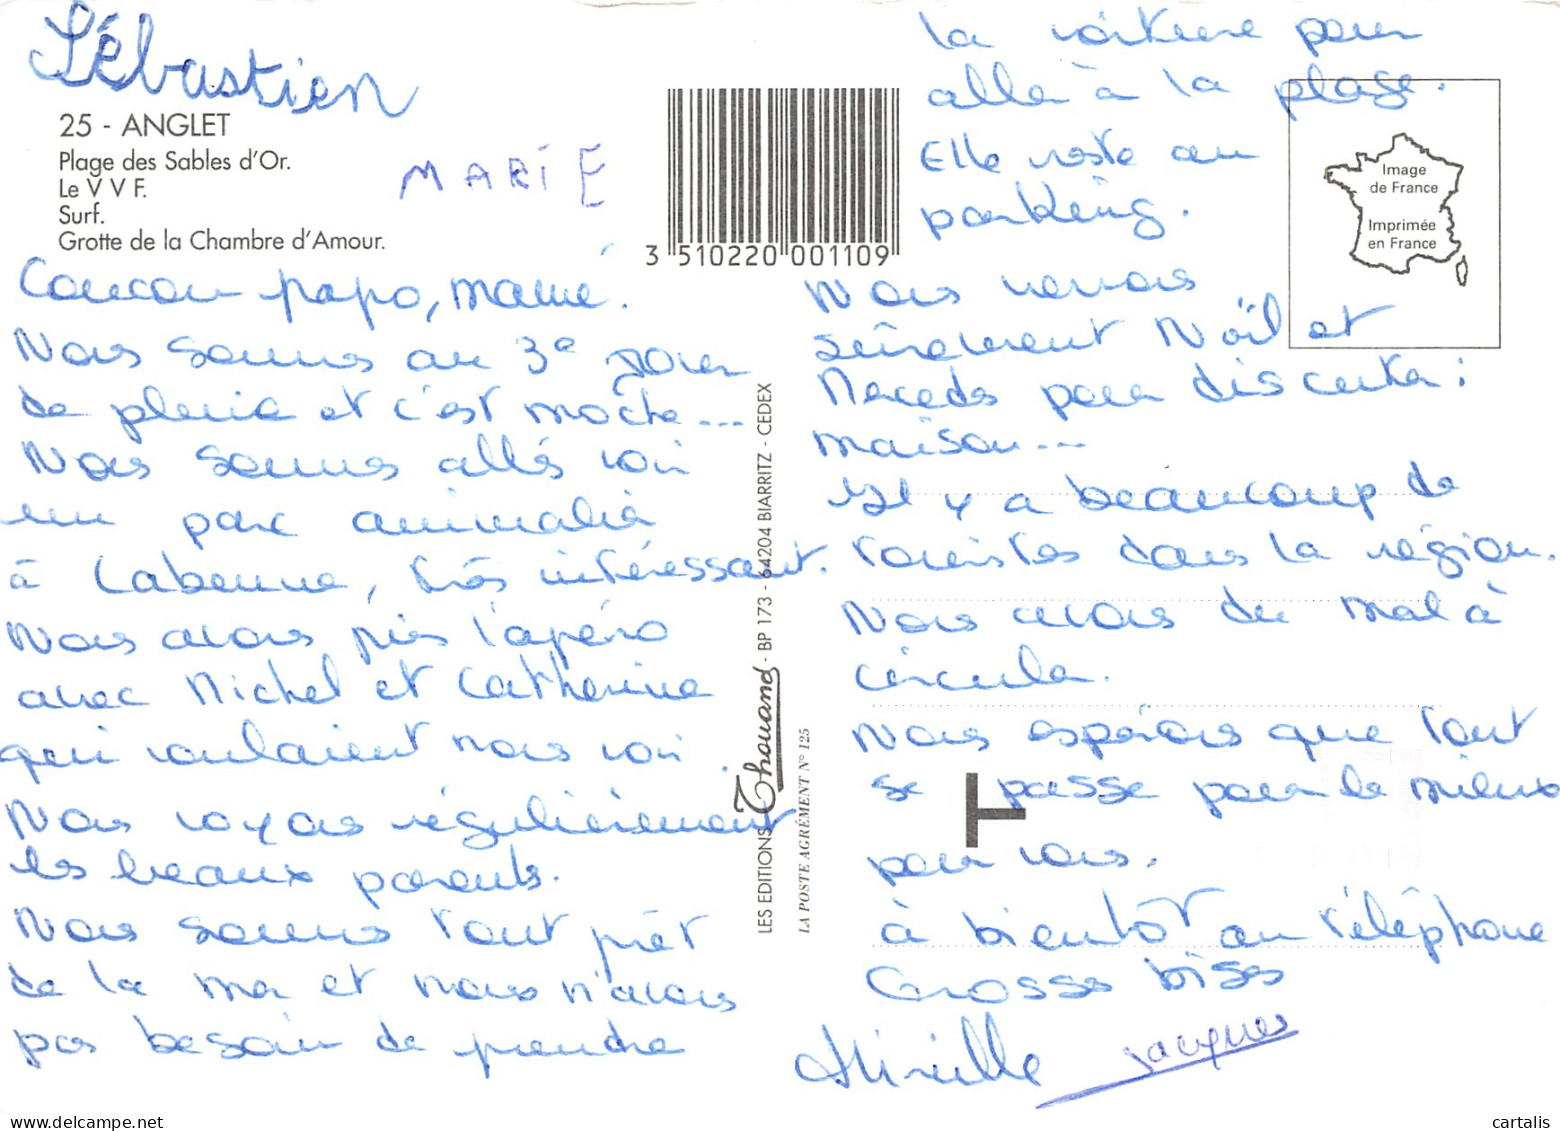 Sébastien
25 - ANGLET
Plage des Sables d'Or.
Le V V F.
Surf.
Grotte de la Chambre d'Amour.
MARIE
3 510220 001109
Coucou papo, mamie.
Nous sommes au 3e jour
de pluie et c'est moche...
Nous sommes allés voir
un parc animalier
à Labenne, très intéressant.
Nous avons pris l'apéro
avec Michel et Catherine
qui voulaient nous voir.
Nous voyons régulièrement
les beaux parents.
Nous sommes tout prêt
de la mer et nous n'avons
pas besoin de prendre
la voiture pour
aller à la plage.
Elle reste au
parking.
Nous verrons
sûrement Noël et
Mercedes pour discuter :
maison...
Il y a beaucoup de
touristes dans la région.
Nous avons du mal à
circuler.
Nous espérons que tout
se passe pour le mieux
pour vous.
à bientôt au téléphone
Grosses bises
Mireille Jacques
LES EDITIONS Thouand - BP 173 - 64204 BIARRITZ - CEDEX
LA POSTE AGRÉMENT N° 125
Image
de France
Imprimée
en France
T
cartalis